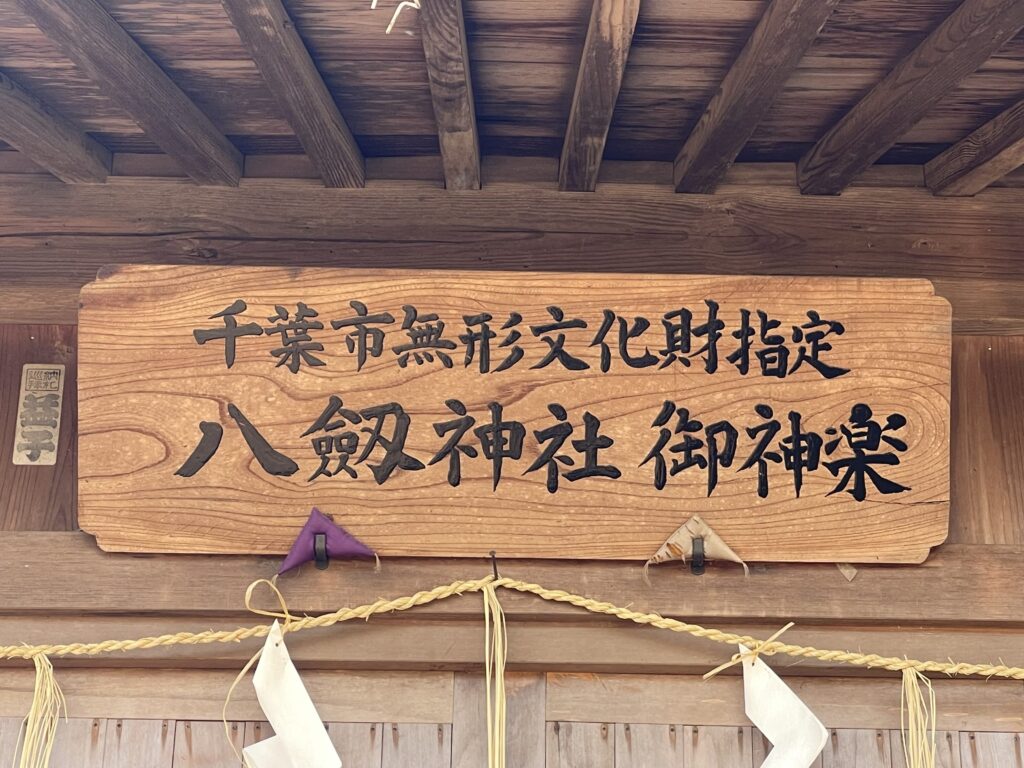 千葉市無形文化財指定
八劔神社 御神楽
益子